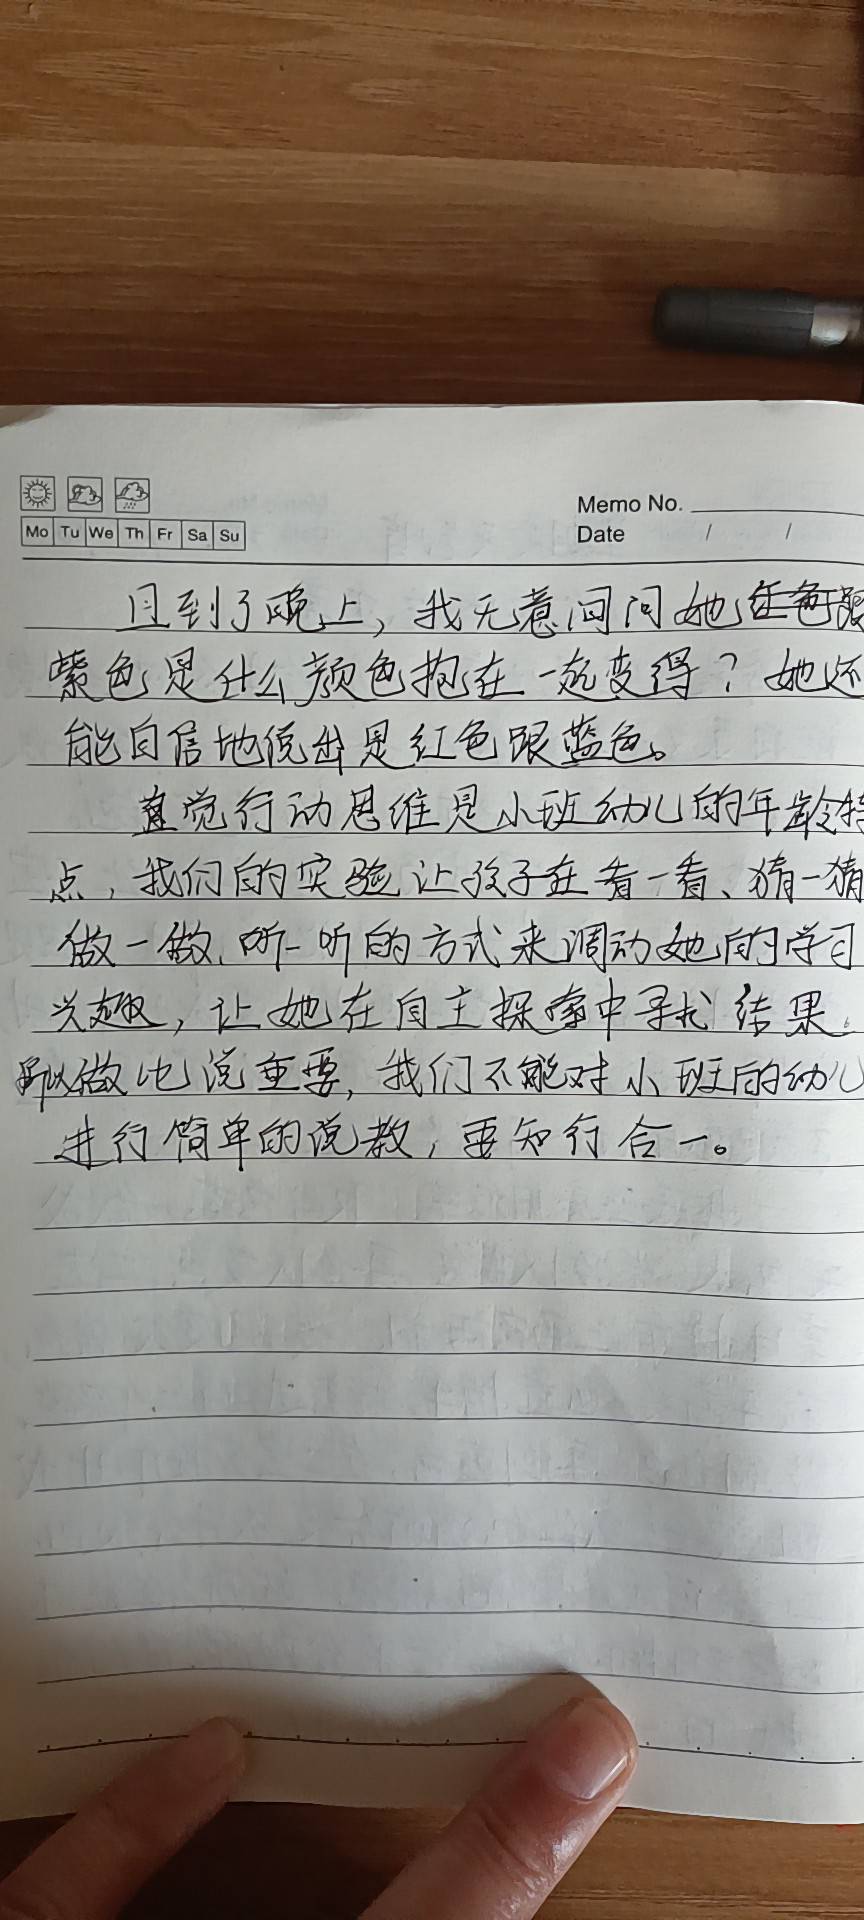 Memo No.
Mo Tu We Th Fr Sa Su
Date / /
且到了晚上，我无意间问她
紫色是什么颜色抱在一起变得？她还
能自信地说出是红色跟蓝色。
直觉行动思维是小班幼儿的年龄特
点，我们的实验让孩子在看一看、猜一猜
做一做、听一听的方式来调动她的学习
兴趣，让她在自主探索中寻找结果。
所以做比说重要，我们不能对小班的幼儿
进行简单的说教，要知行合一。